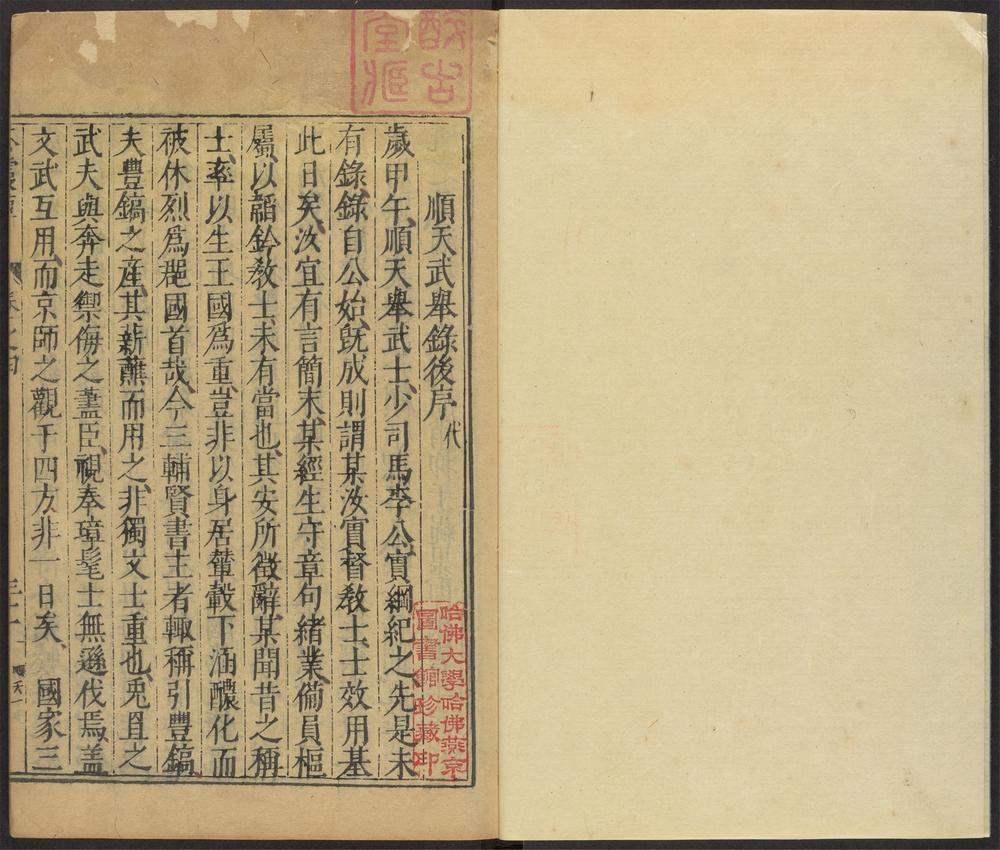 順天武舉錄後序 代
歲甲午順天舉武士少司馬李公實綱紀之先是未
有錄錄自公始旣成則謂某汝實督敎士士效用基
此日矣汝宜有言簡末某經生守章句緒業備員樞
屬以韜鈐敎士未有當也其安所徵辭某聞昔之稱
士率以生王國爲重豈非以身居輦轂下涵醲化而
被休烈爲郡國首哉今三輔賢書主者輙稱引豐鎬
夫豐鎬之產其薪蘸而用之非獨文士重也兎罝之
武夫與奔走禦侮之藎臣視奉璋髦士無遜伐焉蓋
文武互用而京師之觀于四方非一日矣 國家三
卷之四
哈佛大學哈佛燕京
圖書館珍藏印